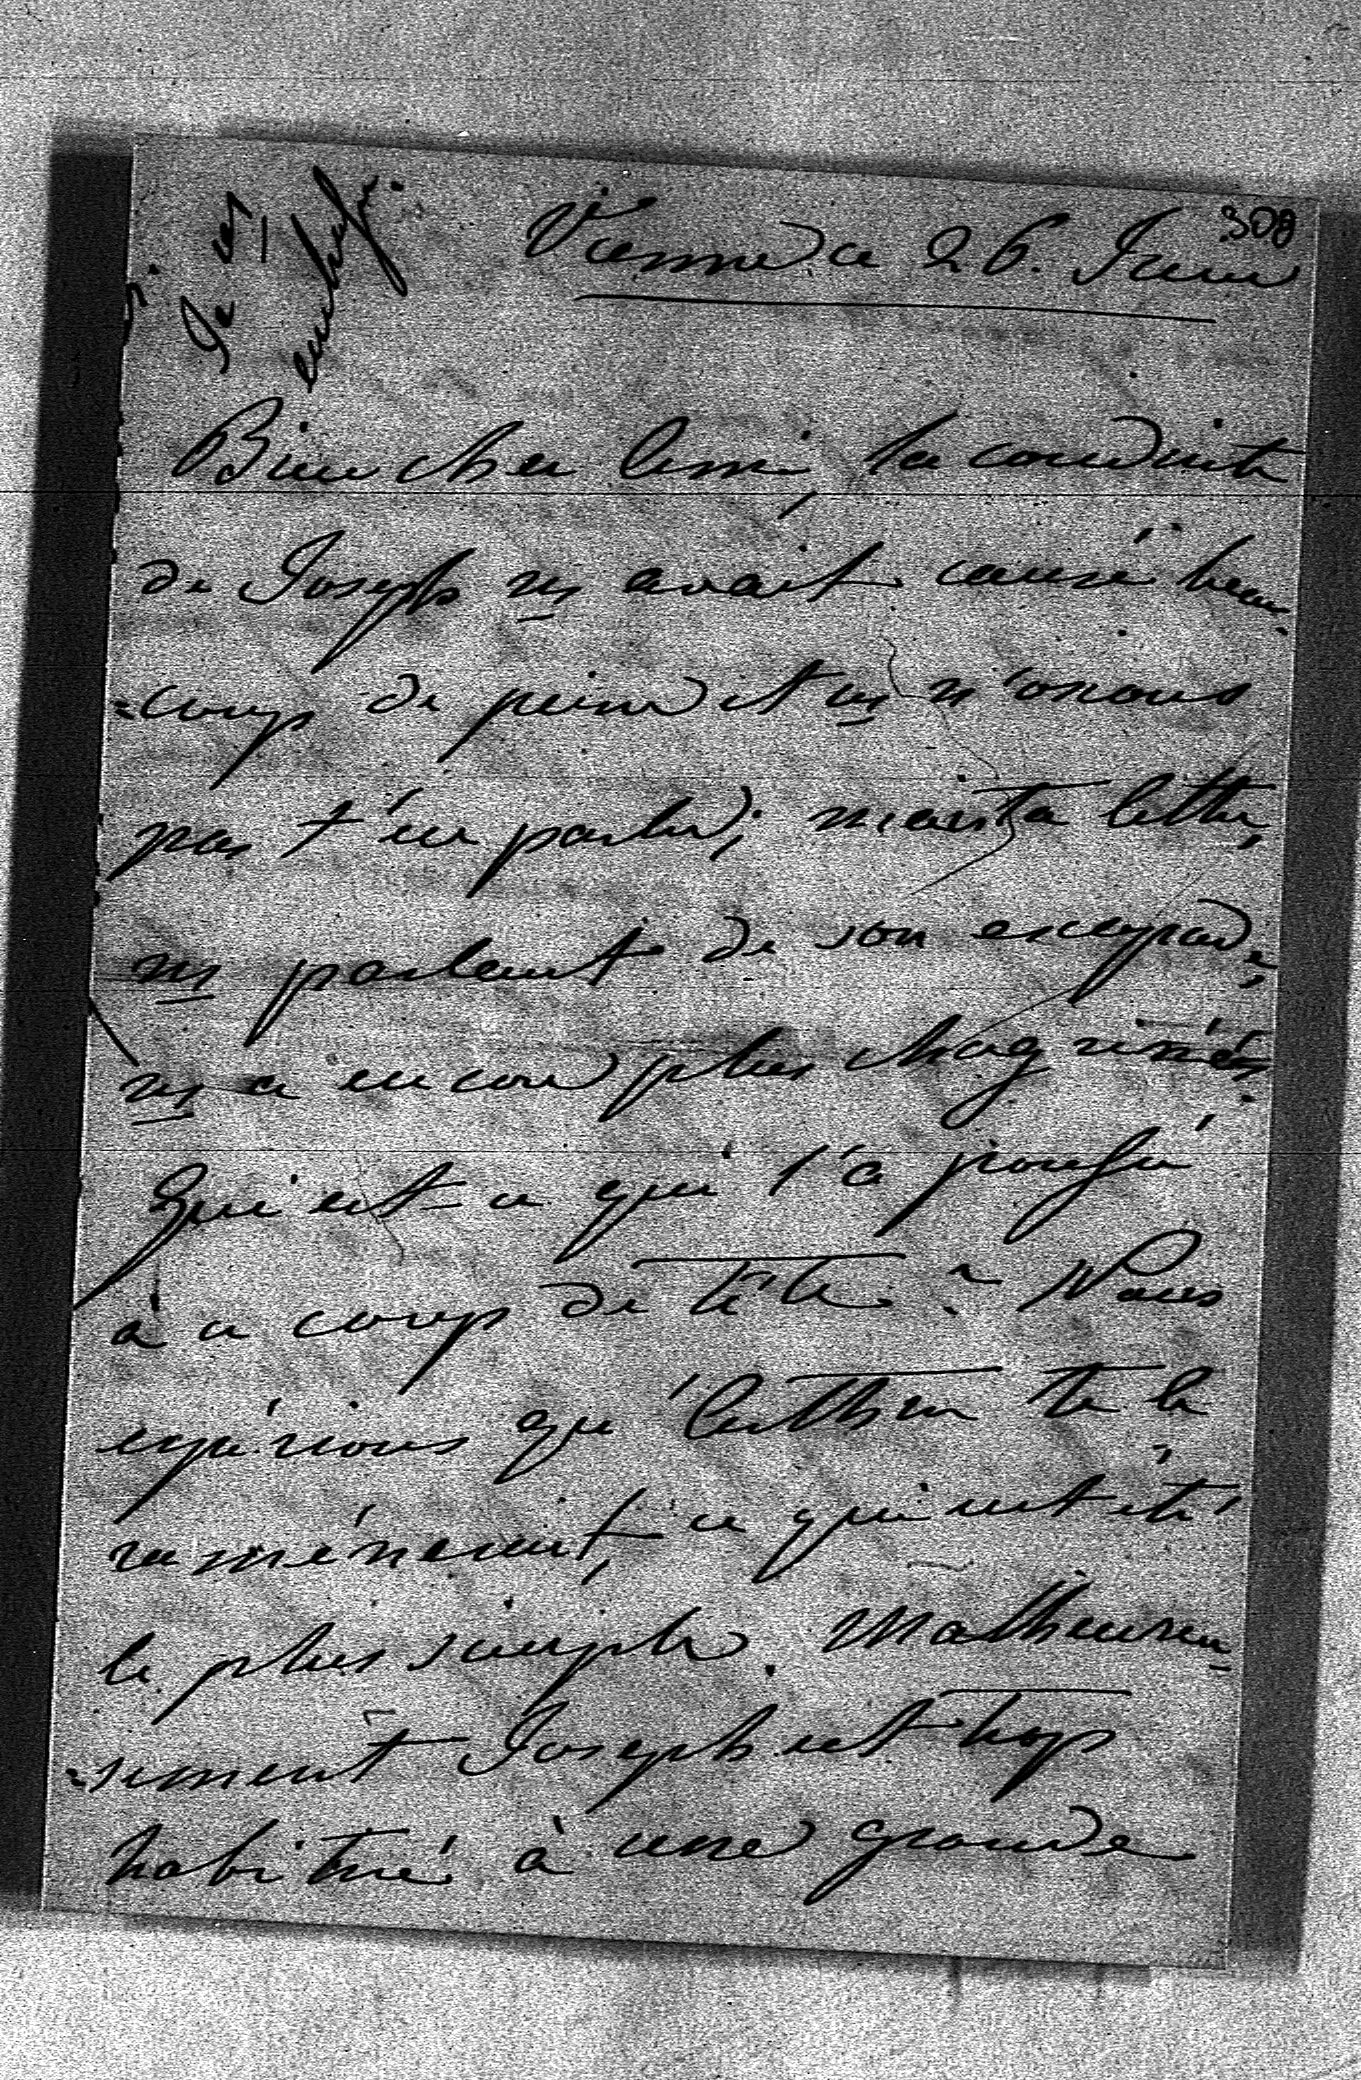 308
Vienne ce 26. Juin
Je vs
embrasse.
Bien cher ami, la conduite
de Joseph ns avait causé beau-
=coup de peine et ns n'osions
pas t'en parler; mais ta lettre,
ns parlant de son escapade,
ns a encore plus chagrinés.
Qui est-ce qui l'a poussé
à ce coup de tête? Nous
espérions qu'
te le
ramènerait, ce qui eut été
le plus simple. Malheureu-
=sement Joseph est trop
habitué à une grande